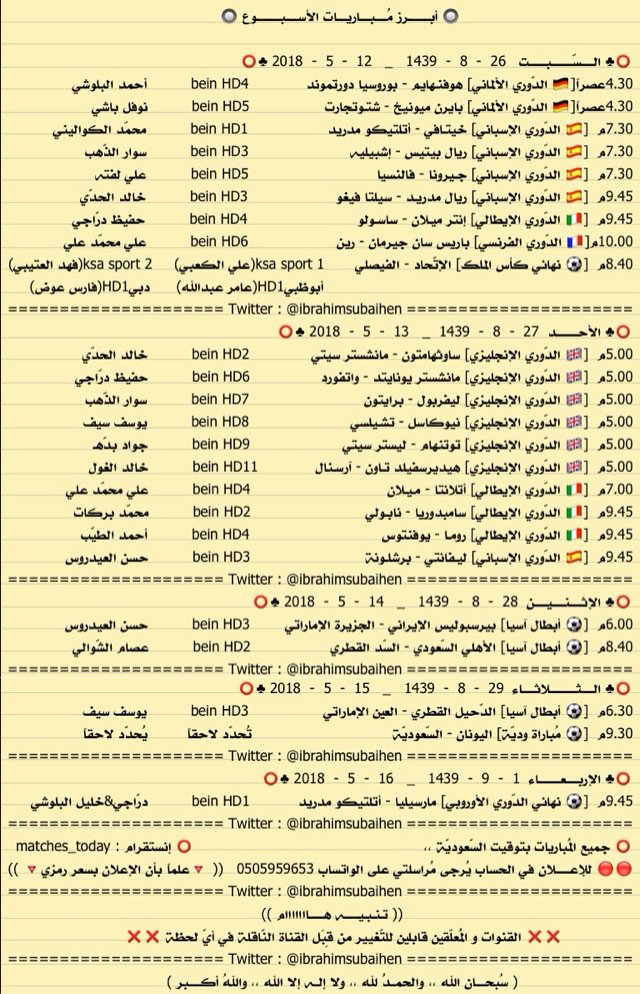 🔘 أبـــرز مُـبــاريـات الأســبــــوع 🔘
⭕♣ الــسّـــبــت 26 - 8 - 1439 _ 12 - 5 - 2018 ♣⭕
4.30عصراً[🇩🇪 الدّوري الألماني] هوفنهايم - بوروسيا دورتموند bein HD4 أحمد البلوشي
4.30عصراً[🇩🇪 الدّوري الألماني] بايرن ميونيخ - شتوتجارت bein HD5 نوفل باشي
7.30م [🇪🇸 الدّوري الإسباني] خيتافي - أتلتيكو مدريد bein HD1 محمّد الكواليني
7.30م [🇪🇸 الدّوري الإسباني] ريال بيتيس - إشبيليه bein HD3 سوار الذّهب
7.30م [🇪🇸 الدّوري الإسباني] جيرونا - فالنسيا bein HD5 علي لفته
9.45م [🇪🇸 الدّوري الإسباني] ريال مدريد - سيلتا فيغو bein HD3 خالد الحدّي
9.45م [🇮🇹 الدّوري الإيطالي] إنتر ميلان - ساسولو bein HD4 حفيظ درّاجي
10.00م[🇫🇷 الدّوري الفرنسي] باريس سان جيرمان - رين bein HD6 علي محمّد علي
8.40م [⚽ نهائي كأس الملك] الإتّحاد - الفيصلي ksa sport 1(علي الكعبي) ksa sport 2(فهد العتيبي)
أبوظبيHD1(عامر عبدالله) دبيHD1(فارس عوض)
===================== Twitter : @ibrahimsubaihen =====================
⭕♣ الأحـــد 27 - 8 - 1439 _ 13 - 5 - 2018 ♣⭕
5.00م [🇬🇧 الدّوري الإنجليزي] ساوثهامتون - مانشستر سيتي bein HD2 خالد الحدّي
5.00م [🇬🇧 الدّوري الإنجليزي] مانشستر يونايتد - واتفورد bein HD6 حفيظ درّاجي
5.00م [🇬🇧 الدّوري الإنجليزي] ليفربول - برايتون bein HD7 سوار الذّهب
5.00م [🇬🇧 الدّوري الإنجليزي] نيوكاسل - تشيلسي bein HD8 يوسف سيف
5.00م [🇬🇧 الدّوري الإنجليزي] توتنهام - ليستر سيتي bein HD9 جواد بدّهـ
5.00م [🇬🇧 الدّوري الإنجليزي] هيديرسفيلد تاون - آرسنال bein HD11 خالد الغول
7.00م [🇮🇹 الدّوري الإيطالي] أتلانتا - ميلان bein HD4 علي محمّد علي
9.45م [🇮🇹 الدّوري الإيطالي] سامبدوريا - نابولي bein HD2 محمّد بركات
9.45م [🇮🇹 الدّوري الإيطالي] روما - يوفنتوس bein HD4 أحمد الطيّب
9.45م [🇪🇸 الدّوري الإسباني] ليفانتي - برشلونة bein HD3 حسن العيدروس
===================== Twitter : @ibrahimsubaihen =====================
⭕♣ الإثـنـــيــن 28 - 8 - 1439 _ 14 - 5 - 2018 ♣⭕
6.00م [⚽ أبطال آسيا] بيرسبوليس الإيراني - الجزيرة الإماراتي bein HD3 حسن العيدروس
8.40م [⚽ أبطال آسيا] الأهلي السّعودي - السّد القطري bein HD2 عصام الشّوالي
===================== Twitter : @ibrahimsubaihen =====================
⭕♣ الـثــــلاثــاء 29 - 8 - 1439 _ 15 - 5 - 2018 ♣⭕
6.30م [⚽ أبطال آسيا] الدّحيل القطري - العين الإماراتي bein HD3 يوسف سيف
9.30م [⚽ مُباراة وديّة] اليونان - السّعوديّة تُحدّد لاحقاً يُحدّد لاحقاً
===================== Twitter : @ibrahimsubaihen =====================
⭕♣ الإربـعــــاء 1 - 9 - 1439 _ 16 - 5 - 2018 ♣⭕
9.45م [⚽ نهائي الدّوري الأوروبي] مارسيليا - أتلتيكو مدريد bein HD1 درّاجي&خليل البلوشي
===================== Twitter : @ibrahimsubaihen =====================
⭕ جميع المُباريات بتوقيت السّعوديّة ،، ⭕ إنستقرام : matches_today
🔴🔴 للإعــــلان في الحساب يُرجى مُراسلتي على الواتساب 0505959653 (( 🔻 علماً بأن الإعلان بسعر رمزي 🔻 ))
===================== Twitter : @ibrahimsubaihen =====================
(( تـنـبـيــه هــااااااام ))
❌❌ القنوات و المُعلّقين قابلين للتّغيير من قِبَل القناة النّاقلة في أيّ لحظة ❌❌
===================== Twitter : @ibrahimsubaihen =====================
( سُبحـان الله ،، والحمـدُ لله ،، ولا إلـه إلا الله ،، واللهُ أكـبـر )